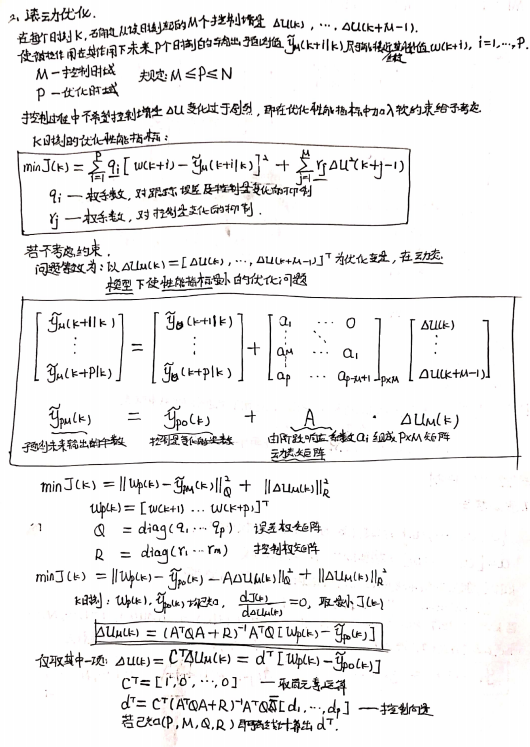 2. 滚动优化.
在每个时刻K, 要确定从该时刻起的M个控制增量 ΔU(k), ⋯, ΔU(k+M-1).
使被控对象在其作用下未来P个时刻的输出预测值 ỹM(k+i|k) 尽可能接近期望值 w(k+i), i=1,⋯,P.
M — 控制时域 规定: M≤P≤N
P — 优化时域
控制过程中不希望控制增量 ΔU 变化过于剧烈, 即在优化性能指标中加入软约束给予考虑
K时刻的优化性能指标:
min J(k) = Σ_{i=1}^{P} qi [w(k+i) - ỹM(k+i|k)]² + Σ_{j=1}^{M} rj ΔU²(k+j-1)
qi — 权系数, 对跟踪误差及控制量变化的抑制
rj — 权系数, 对控制量变化的抑制.
若不考虑约束.
问题等效为: 以 ΔUM(k) = [ΔU(k), ⋯, ΔU(k+M-1)]ᵀ 为优化变量, 在动态
模型下使性能指标最小的优化问题
[ỹM(k+1|k) ⋮ ỹM(k+P|k)] = [ỹ0(k+1|k) ⋮ ỹ0(k+P|k)] + [a1 ⋯ 0 ⋮ ⋱ aM ⋯ a1 ⋮ aP ⋯ aP-M+1]P×M [ΔU(k) ⋮ ΔU(k+M-1)]
ỹPM(k) = ỹP0(k) + A · ΔUM(k)
预测未来输出的个数 控制量变化的次数 由阶跃响应系数 ai 组成 P×M 矩阵
动态矩阵
min J(k) = ‖wp(k) - ỹPM(k)‖²Q + ‖ΔUM(k)‖²R
wp(k) = [w(k+1) … w(k+P)]ᵀ
Q = diag(q1 ⋯ qp) 误差权矩阵
R = diag(r1 ⋯ rm) 控制权矩阵
min J(k) = ‖wp(k) - ỹP0(k) - AΔUM(k)‖²Q + ‖ΔUM(k)‖²R
K时刻: wp(k), ỹP0(k) 均已知, dJ(k)/dΔUM(k) = 0, 取最小 J(k)
ΔUM(k) = (AᵀQA + R)⁻¹AᵀQ [wp(k) - ỹP0(k)]
仅取其中一项: ΔU(k) = CᵀΔUM(k) = dᵀ [wp(k) - ỹP0(k)]
Cᵀ = [1, 0, ⋯, 0] — 取首元素运算
dᵀ = Cᵀ(AᵀQA + R)⁻¹AᵀQ [d1, ⋯, dp] — 控制向量
若已知 (P, M, Q, R) 计算出 dᵀ.